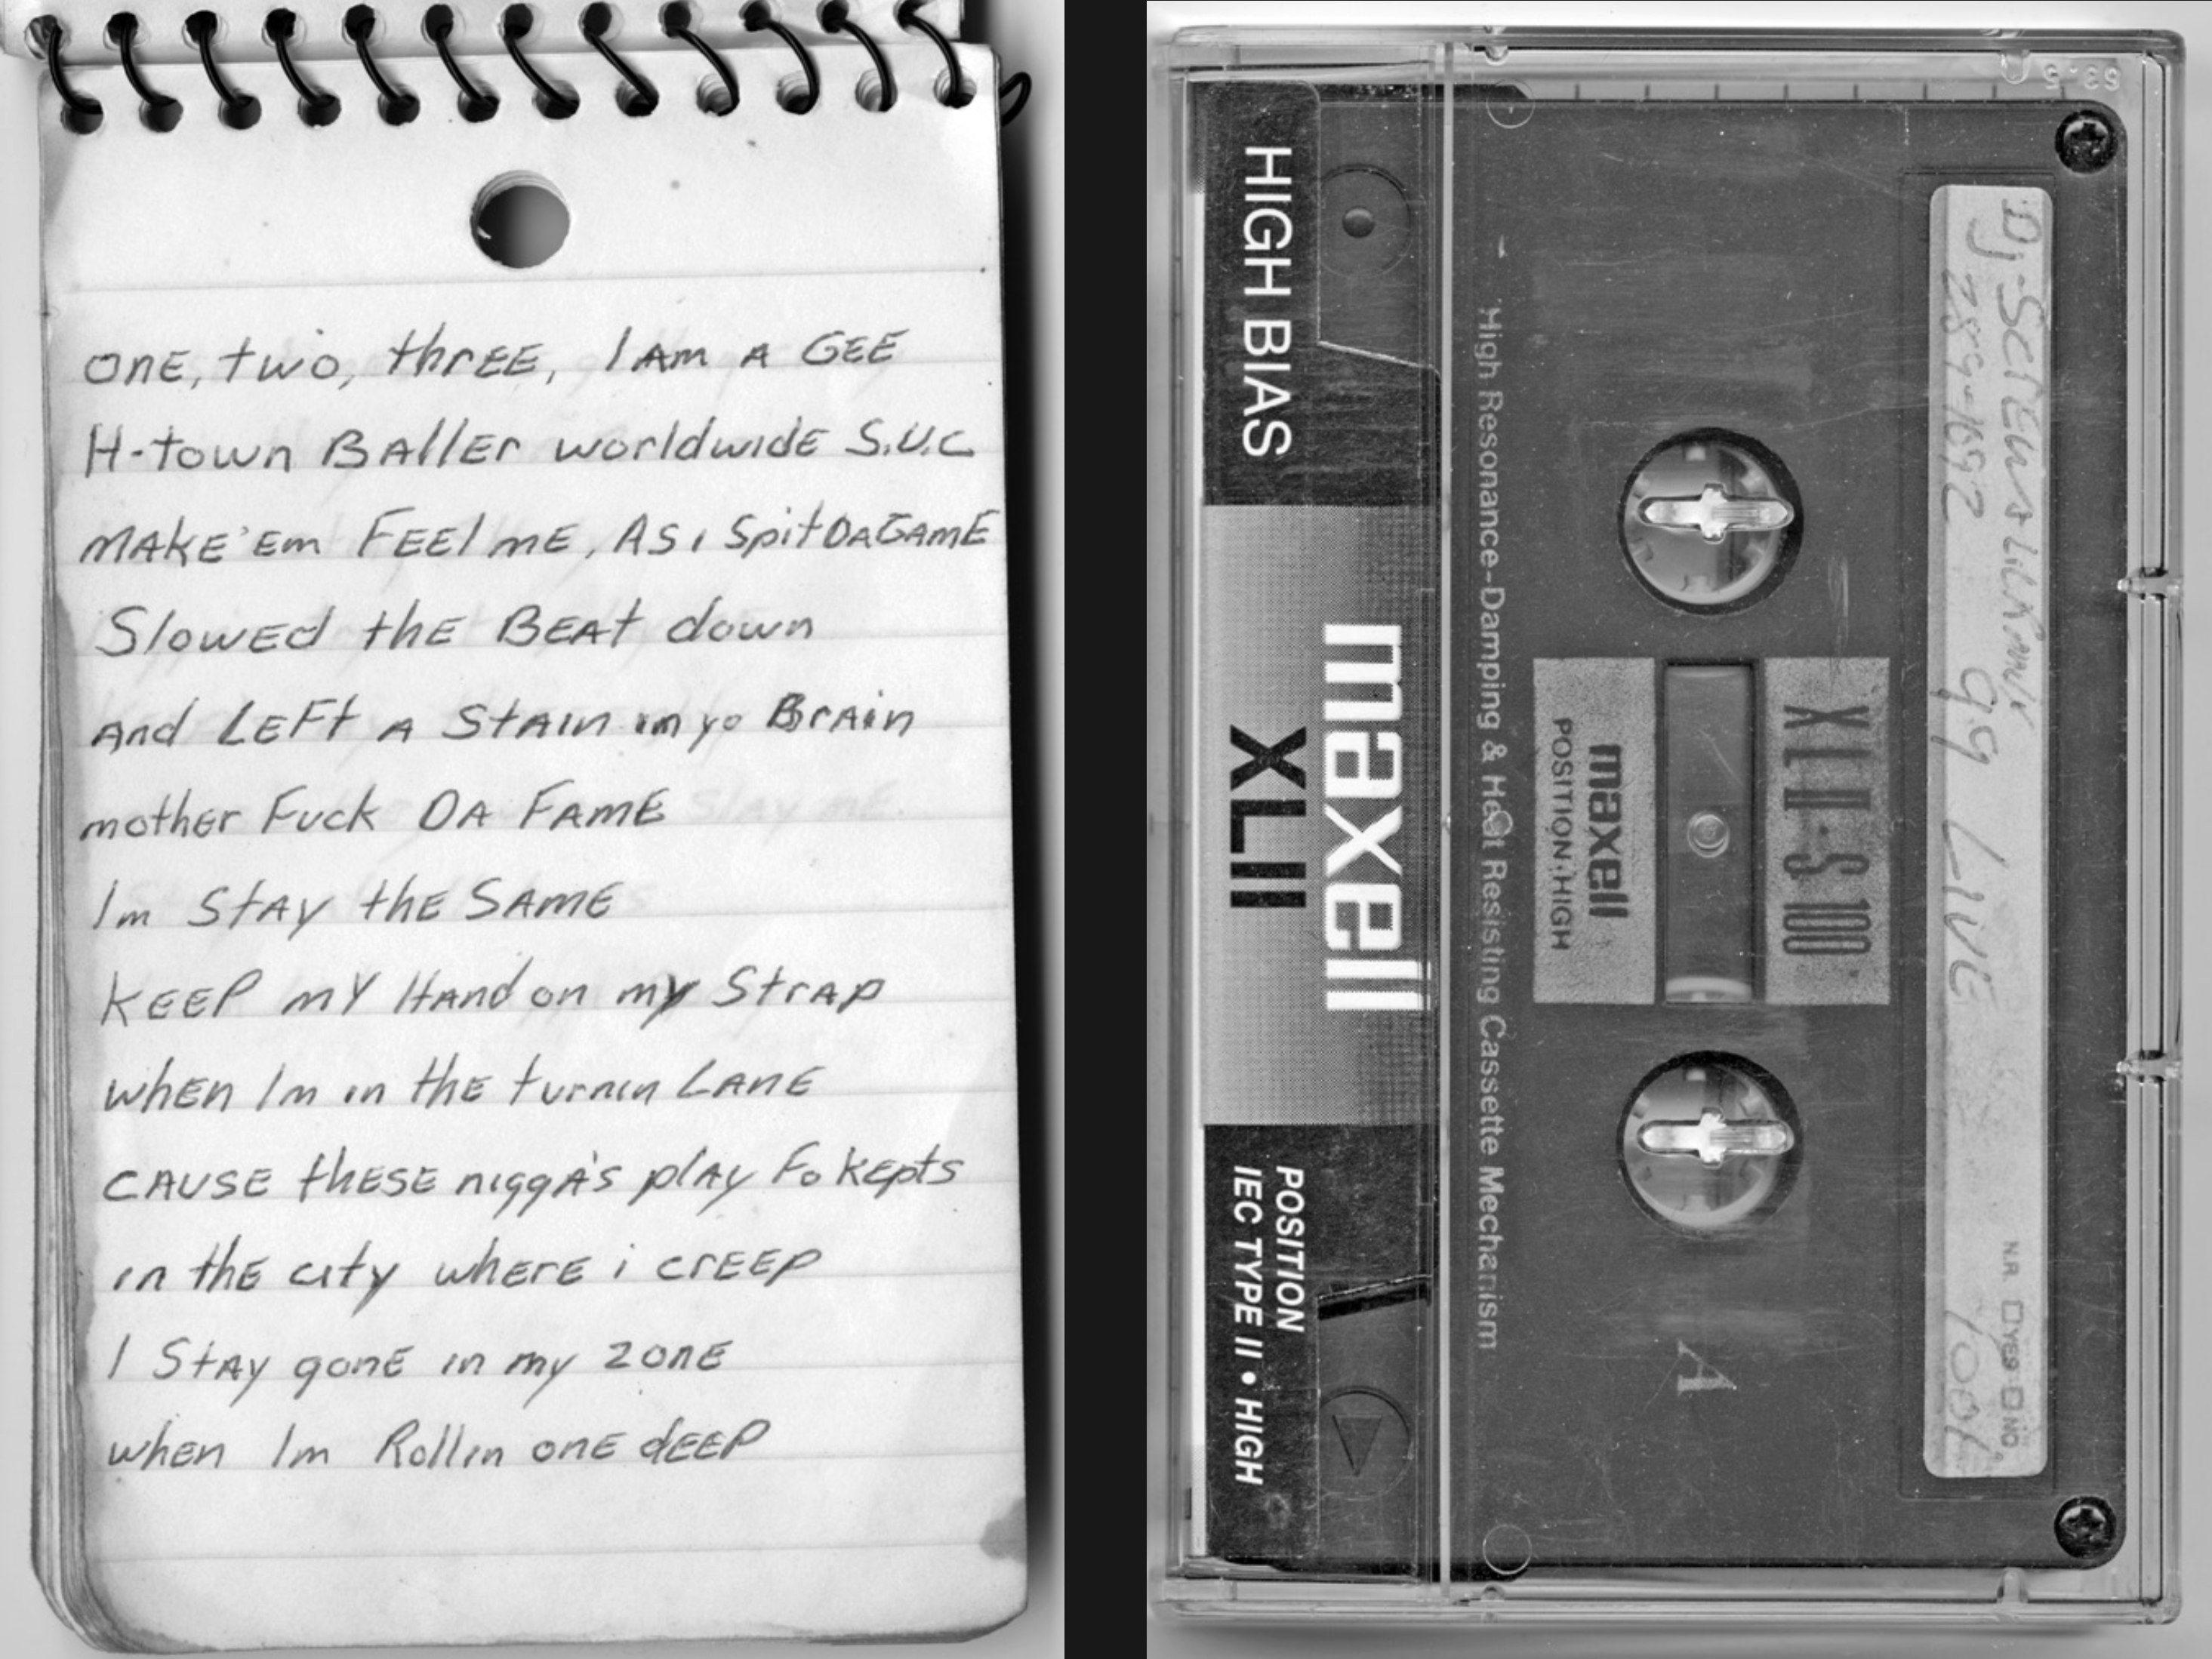 ONE, two, thrEE, I AM A GEE
H-town BAllEr worldwidE S.U.C
MAKE'Em FEEl mE, AS i Spit DA GAME
SlowEd thE BEAt down
And LEFt A StAin in yo BrAin
mother Fuck DA FAME
Im StAy thE SAME
KEEP mY HAnd on my StrAp
whEn Im in thE turnin LANE
CAUSE thESE niggA's plAy Fo Kepts
in thE city whErE i crEEp
I StAy gonE in my zonE
whEn Im Rollin onE dEEP
HIGH BIAS
maxell
XLII
POSITION
IEC TYPE II • HIGH
High Resonance-Damping & Heat Resisting Cassette Mechanism
maxell
POSITION·HIGH
XLII-S 100
A
Dj-Screw
99 LIVE
N.R. □YES □NO